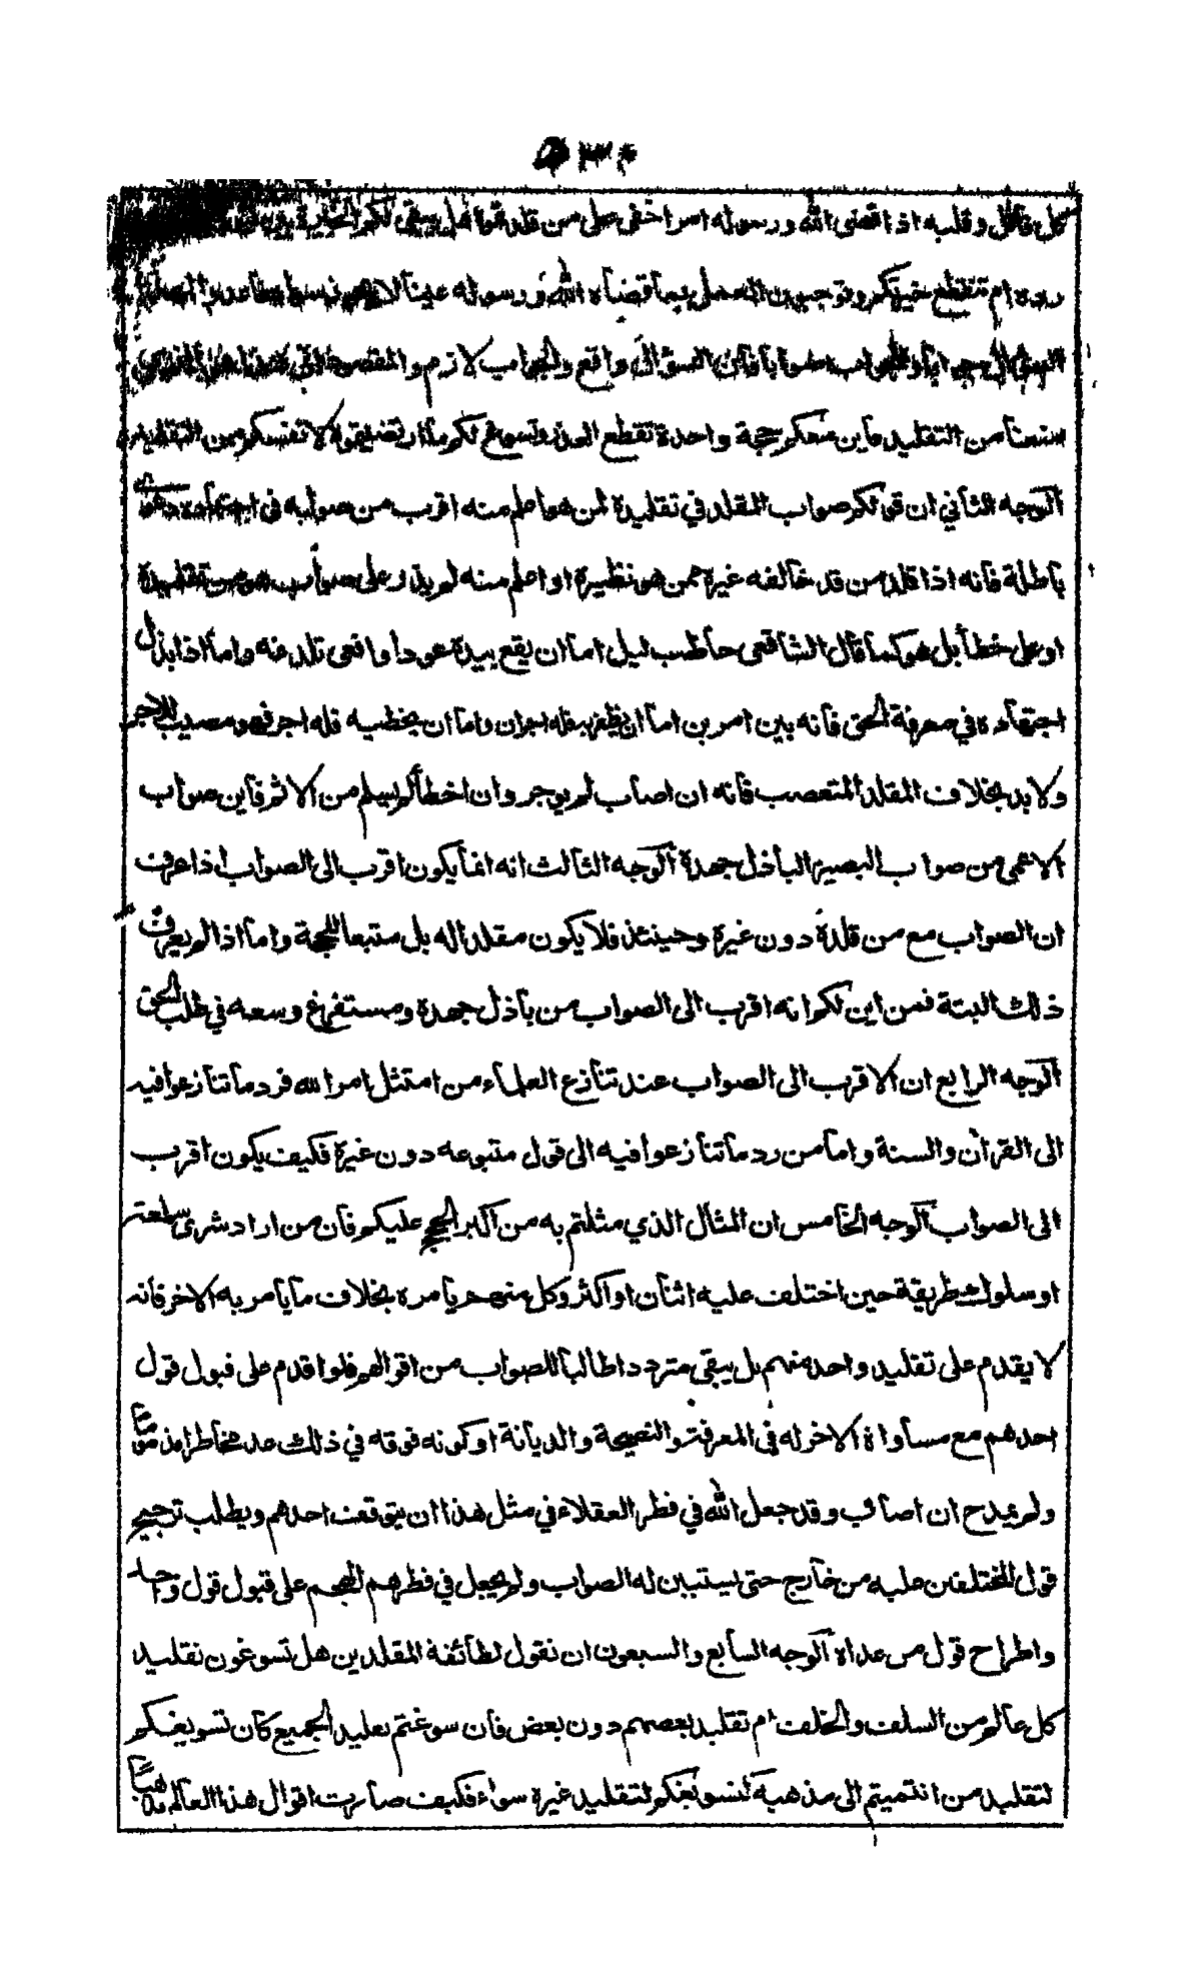 ٥٣٠
كل قائل وقلبه اذا قضى الله ورسوله امرا خفى على من قلدتموه هل يبقى لكم الخيرة بين
رده ام تنقطع خيرتكم وتوجبون العمل بما قضاه الله ورسوله عينا لا
السؤال جوابا وللجواب صوابا فان السؤال واقع والجواب لازم والمقصود ان هذا هو الذى
منعنا من التقليد فاين معكم حجة واحدة تقطع العذر وتسوغ لكم ما ارتضيتموه لانفسكم من التقليد
الوجه الثاني ان قولكم صواب المقلد في تقليده لمن هو اعلم منه اقرب من صوابه فى اجتهاده دعوى
باطلة فانه اذا قلد من قد خالفه غيره ممن هو نظيره او اعلم منه لم يدر على صواب هو من تقليده
او على خطأ بل هو كما قال الشافعى حاطب ليل اما ان يقع بيده عود او افعى تلدغه واما اذا بذل
اجتهاده في معرفة الحق فانه بين امرين اما ان يظفر به فله اجران واما ان يخطيه فله اجر فهو مصيب للاجر
ولا بد بخلاف المقلد المتعصب فانه ان اصاب لم يوجر وان اخطأ لم يسلم من الاثم فاين صواب
الاعمى من صواب البصير الباذل جهده الوجه الثالث انه انما يكون اقرب الى الصواب اذا عرف
ان الصواب مع من قلده دون غيره وحينئذ فلا يكون مقلدا له بل متبعا للحجة واما اذا لم يعرف
ذلك البتة فمن اين لكم انه اقرب الى الصواب من باذل جهده ومستفرغ وسعه في طلب الحق
الوجه الرابع ان الاقرب الى الصواب عند تنازع العلماء من امتثل امر الله فرد ما تنازعوا فيه
الى القران والسنة واما من رد ما تنازعوا فيه الى قول متبوعه دون غيره فكيف يكون اقرب
الى الصواب الوجه الخامس ان المثال الذي مثلتم به من اكبر الحجج عليكم فان من اراد شرى سلعة
او سلوك طريقة حين اختلف عليه اثنان او اكثر وكل منهم يامره بخلاف ما يامر به الاخر فانه
لا يقدم على تقليد واحد منهم بل يبقى مترددا طالبا للصواب من اقوالهم فلو اقدم على قبول قول
احدهم مع مساواة الاخر له في المعرفة والنصيحة والديانة او كونه فوقه في ذلك عد مخاطرا مذموما
ولم يمدح ان اصاب وقد جعل الله في فطر العقلاء في مثل هذا ان يتوقف احدهم ويطلب ترجيح
قول المختلفين عليه من خارج حتى يستبين له الصواب ولم يجعل في فطرهم الهجم على قبول قول واحد
واطراح قول من عداه الوجه السابع والسبعون ان نقول لطائفة المقلدين هل تسوغون تقليد
كل عالم من السلف والخلف ام تقليد بعضهم دون بعض فان سوغتم تقليد الجميع كان تسويغكم
لتقليد من انتميتم الى مذهبه كتسويغكم لتقليد غيره سواء فكيف صارت اقوال هذا العالم مذهبا